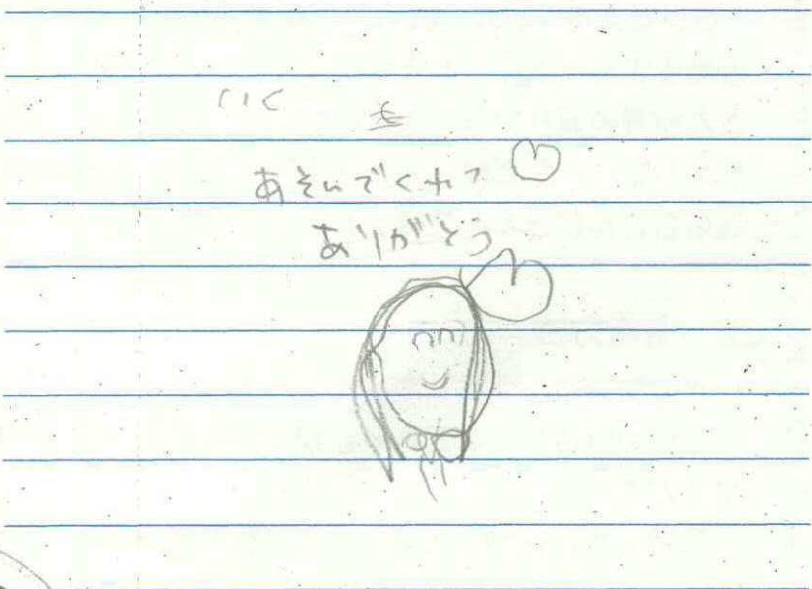 いく
あそんでくれて
ありがとう